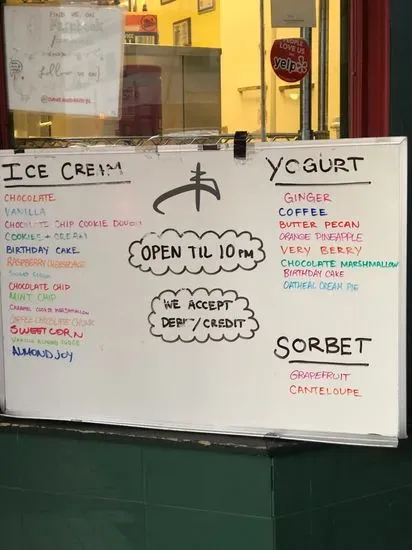 FIND US ON
Facebook
follow us on
PEOPLE
LOVE US
yelp
ICE CREAM
CHOCOLATE
VANILLA
CHOCOLATE CHIP COOKIE DOUGH
COOKIES + CREAM
BIRTHDAY CAKE
RASPBERRY CHEESECAKE
SWEET CREAM
CHOCOLATE CHIP
MINT CHIP
CARAMEL COOKIE MARSHMALLOW
COFFEE CHOCOLATE CHUNK
SWEET CORN
VANILLA ALMOND FUDGE
ALMOND JOY
OPEN TIL 10 PM
WE ACCEPT
DEBIT/CREDIT
YOGURT
GINGER
COFFEE
BUTTER PECAN
ORANGE PINEAPPLE
VERY BERRY
CHOCOLATE MARSHMALLOW
BIRTHDAY CAKE
OATMEAL CREAM PIE
SORBET
GRAPEFRUIT
CANTELOUPE